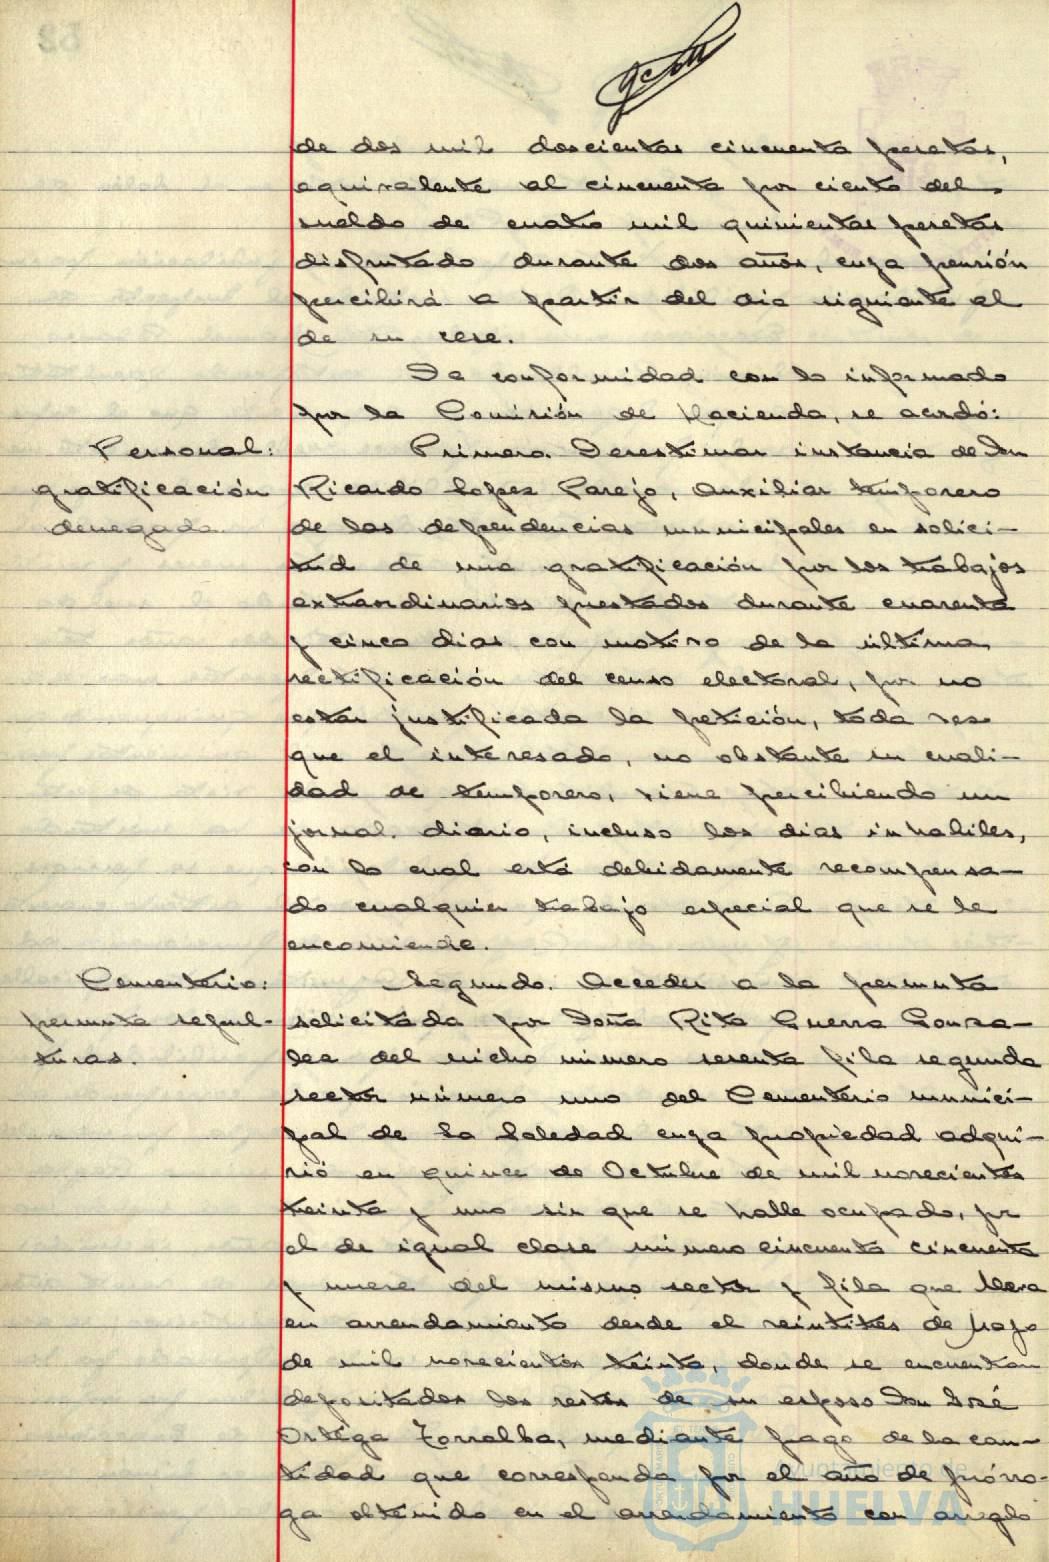 de dos mil doscientas cincuenta pesetas,
equivalente al cincuenta por ciento del
sueldo de cuatro mil quinientas pesetas
disfrutado durante dos años, cuya pensión
percibirá a partir del dia siguiente al
de su cese.
De conformidad con lo informado
por la Comisión de Hacienda, se acordó:
Personal:
gratificación
denegada
Primero. Desestimar instancia de Don
Ricardo Lopez Parejo, Auxiliar temporero
de las dependencias municipales en solici-
tud de una gratificación por los trabajos
extraordinarios prestados durante cuarenta
y cinco dias con motivo de la última
rectificación del censo electoral, por no
estar justificada la petición, toda vez
que el interesado, no obstante su cuali-
dad de temporero, viene percibiendo un
jornal diario, incluso los dias inhabiles,
con lo cual está debidamente recompensa-
do cualquier trabajo especial que se le
encomiende.
Cementerio:
permuta sepul-
turas.
Segundo. Acceder a la permuta
solicitada por Doña Rita Guerra Gonza-
lez del nicho número sesenta fila segunda
sector número uno del Cementerio munici-
pal de la Soledad cuya propiedad adqui-
rió en quince de Octubre de mil novecientos
treinta y uno sin que se halle ocupado, por
el de igual clase número cincuenta cincuenta
y nueve del mismo sector y fila que lleva
en arrendamiento desde el veintitres de Mayo
de mil novecientos treinta, donde se encuentran
depositados los restos de su esposo Don José
Ortega Torralba, mediante pago de la can-
tidad que corresponda por el año de prórro-
ga obtenido en el arrendamiento con arreglo
Ayuntamiento de
HUELVA